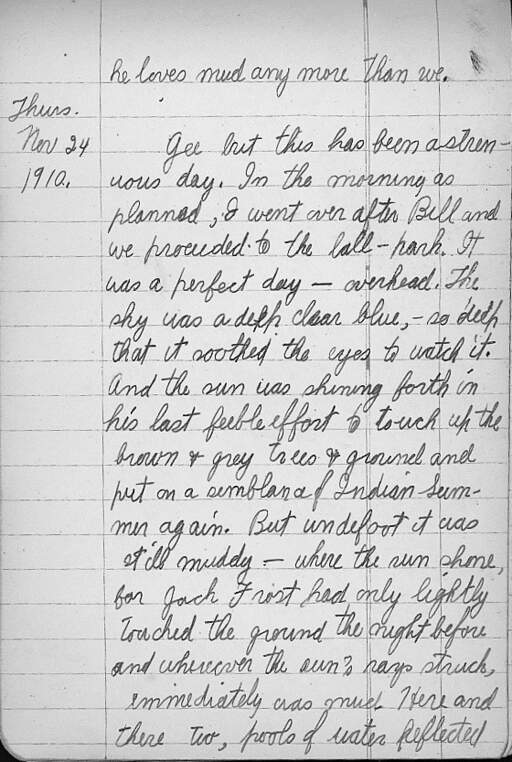 he loves mud any more than we.
Thurs.
Nov 24
1910.
Gee but this has been a stren-
uous day. In the morning as
planned, I went over after Bill and
we proceeded to the ball-park. It
was a perfect day — overhead. The
sky was a deep clear blue, - so deep
that it soothed the eyes to watch it.
And the sun was shining forth in
his last feeble effort to touch up the
brown & grey trees & ground and
put on a semblance of Indian Sum-
mer again. But undefoot it was
still muddy — where the sun shone,
for Jack Frost had only lightly
touched the ground the night before
and wherever the sun's rays struck,
immediately was mud. Here and
there two, pools of water reflected